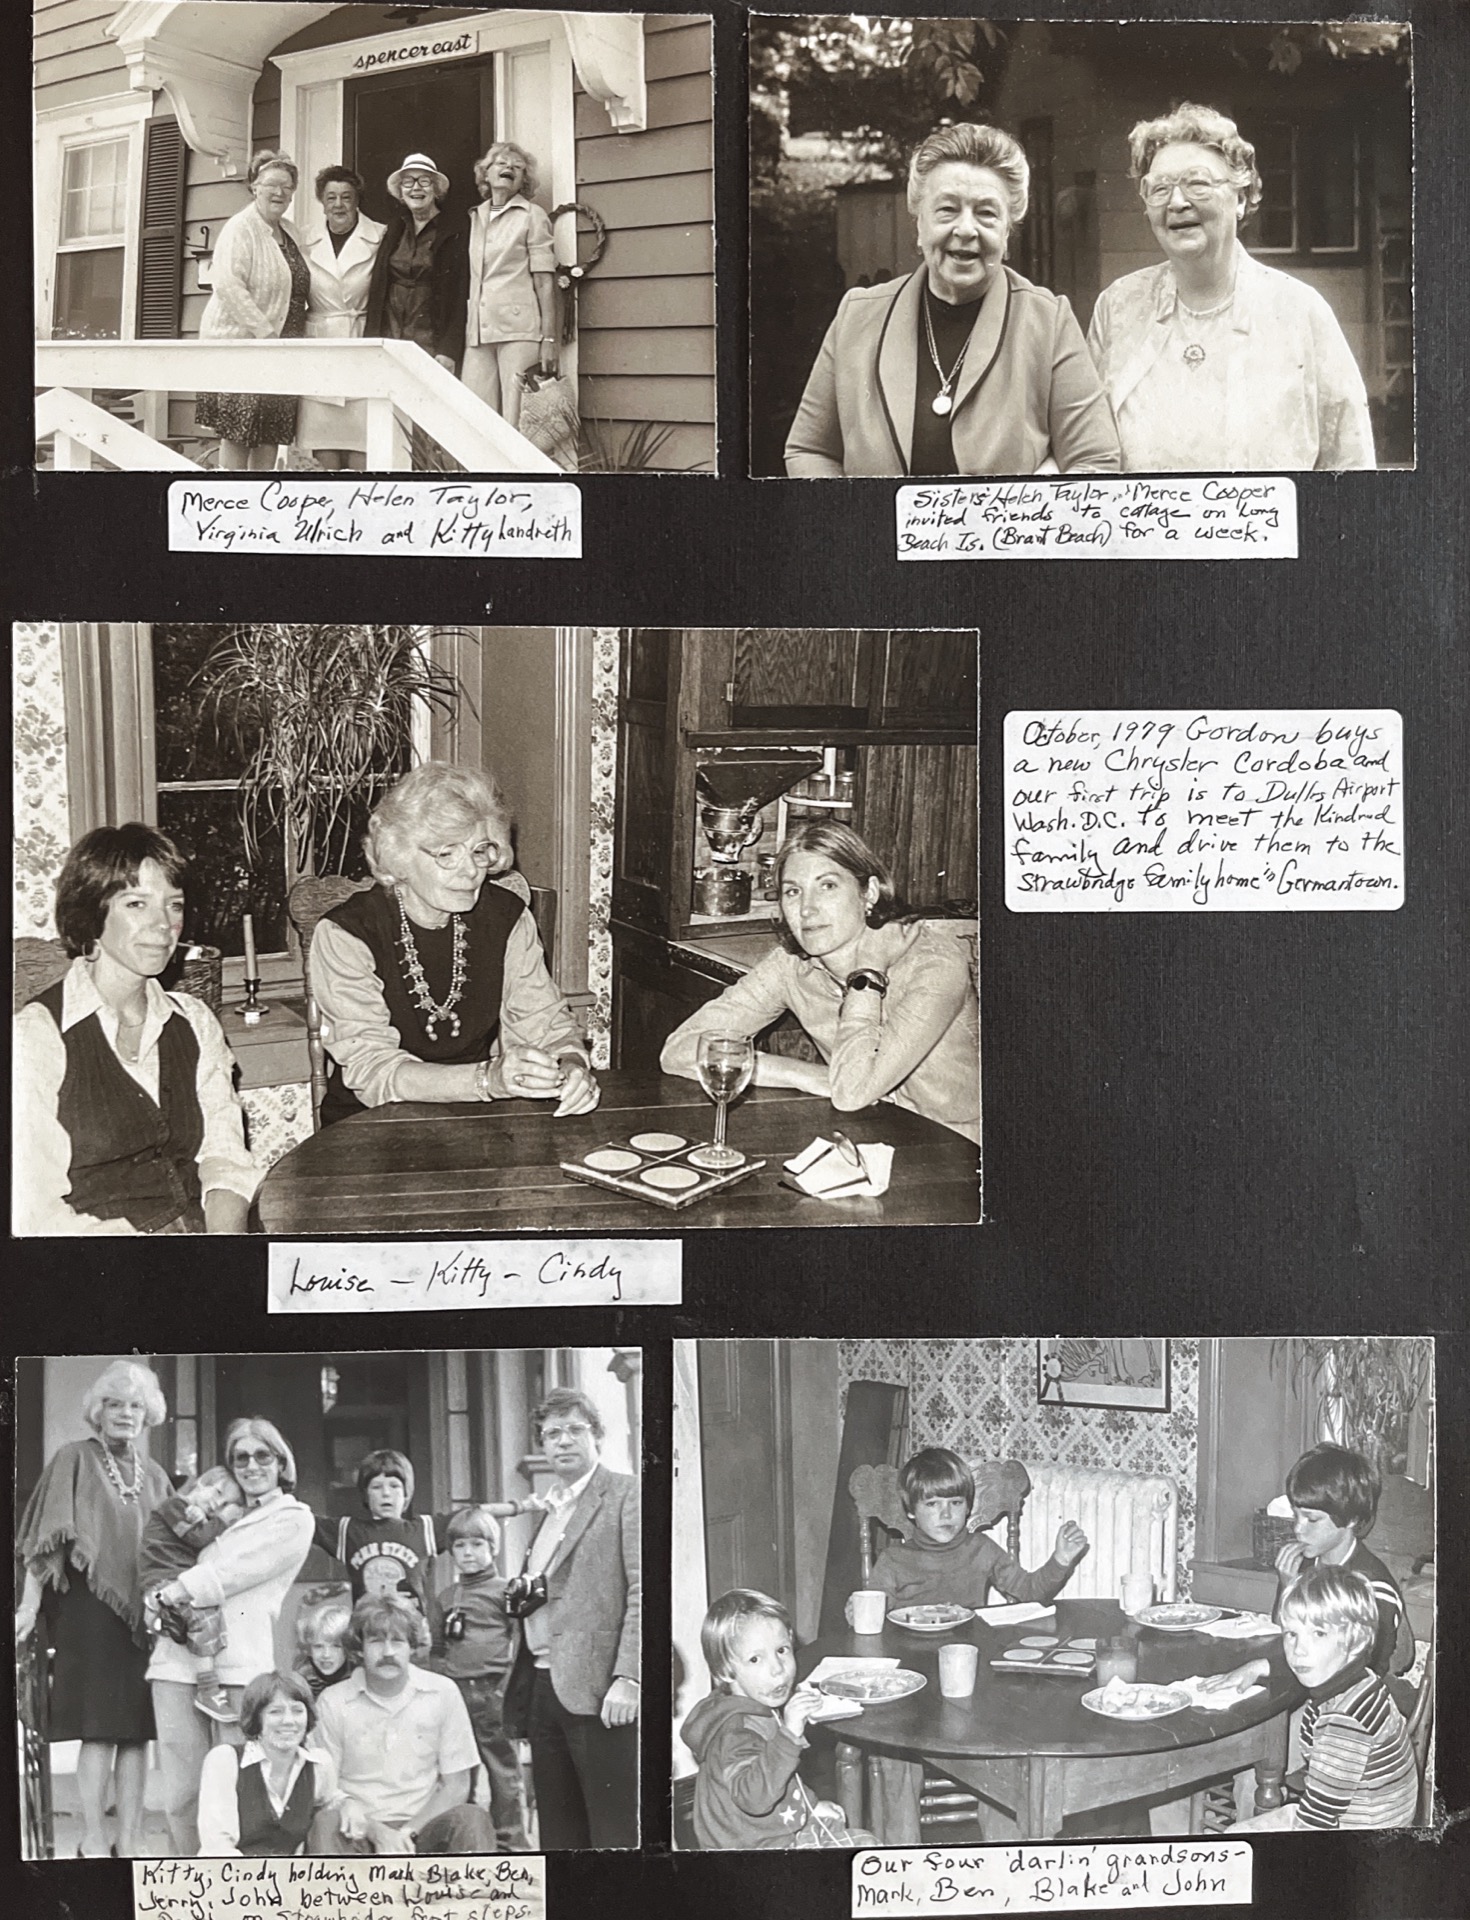 spencereast
Merce Cooper, Helen Taylor,
Virginia Ulrich and Kitty Landreth
Sisters Helen Taylor, Merce Cooper
invited friends to cottage on Long
Beach Is. (Brant Beach) for a week.
October, 1979 Gordon buys
a new Chrysler Cordoba and
our first trip is to Dulles Airport
Wash. D.C. to meet the Kindred
family and drive them to the
Strawbridge family home in Germantown.
Louise - Kitty - Cindy
PENN STATE
Kitty, Cindy holding Mark, Blake, Ben,
Jerry, John between Louise and
on Strawbridge front steps.
Our four 'darlin' grandsons-
Mark, Ben, Blake and John